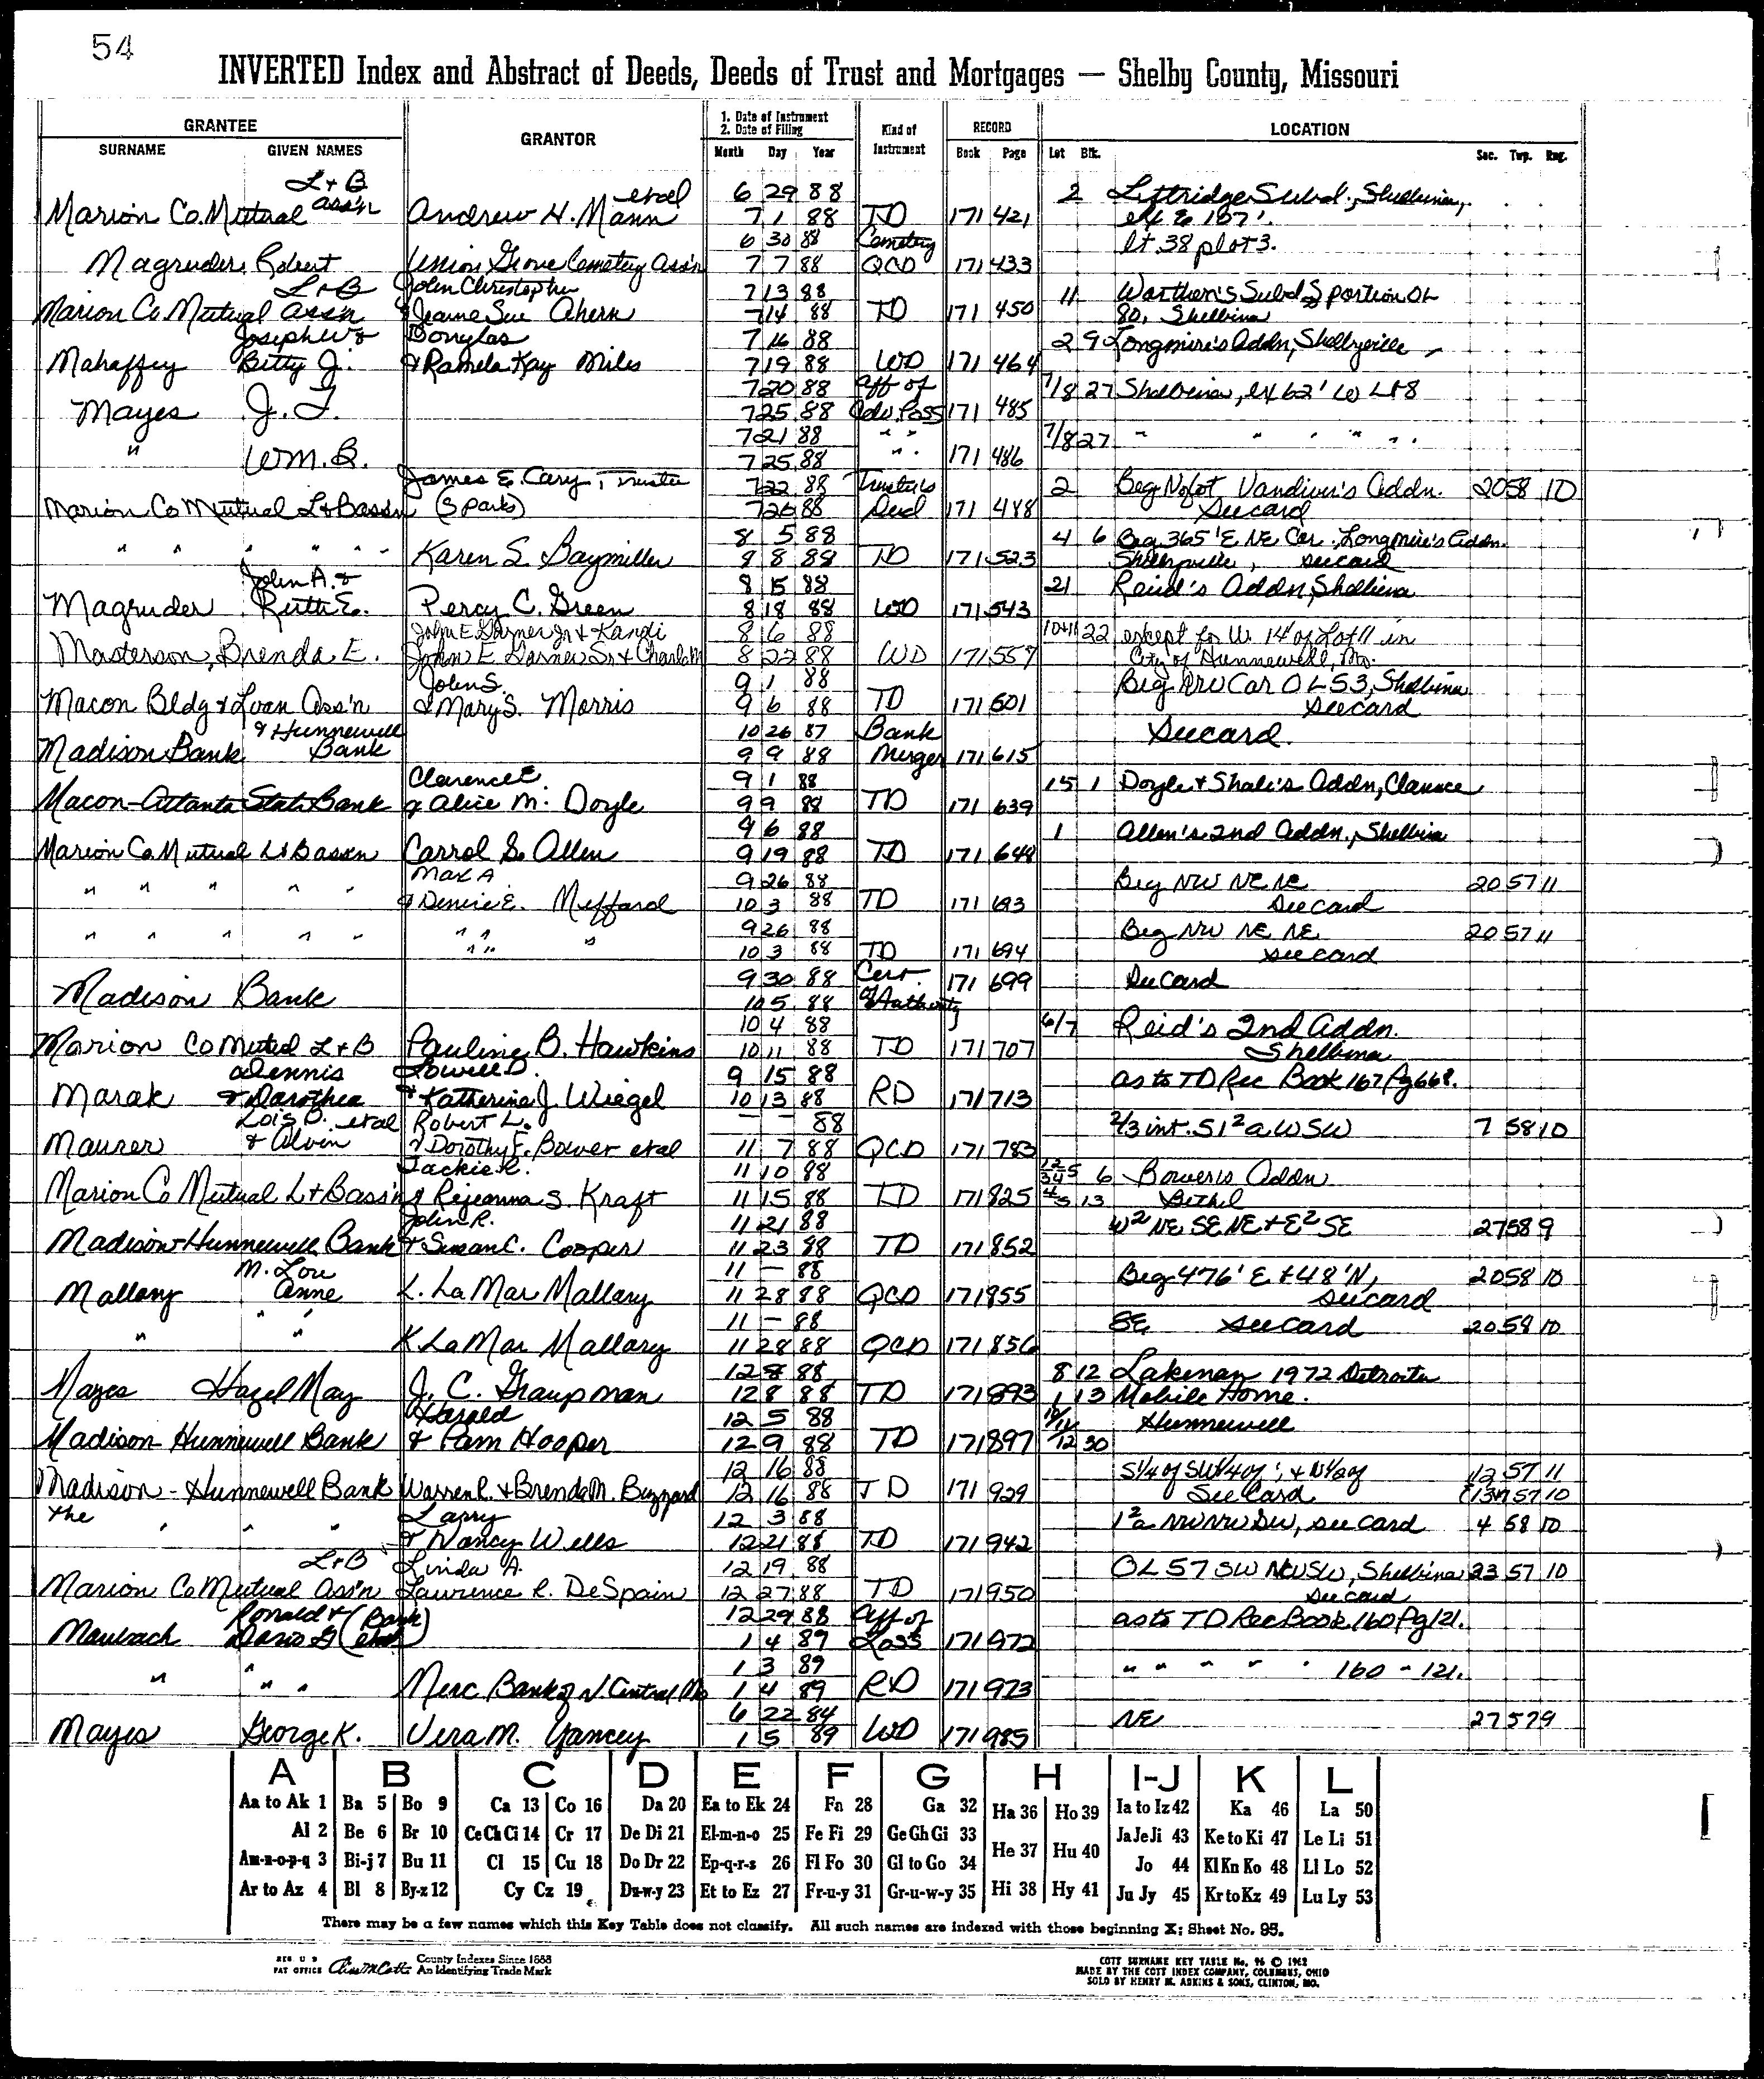 54
INVERTED Index and Abstract of Deeds, Deeds of Trust and Mortgages — Shelby County, Missouri
GRANTEE GRANTOR 1. Date of Instrument 2. Date of Filing Kind of Instrument RECORD LOCATION
SURNAME GIVEN NAMES Month Day Year Book Page Lot Blk. Sec. Twp. Rng.
L+B etal 6 29 88 2 Subd., Shelbina,
Marion Co. Mutual Ass'n Andrew H. Mann 7 1 88 TD 171 421 ex E 107'.
6 30 88 Cemetery lt. 38 plot 3.
Magruder, Robert Union Grove Cemetery Ass'n 7 7 88 QCD 171 433
L+B John Christopher 7 13 88 11 Warthen's Subd S portion OL
Marion Co Mutual Ass'n & Jeanne Sue Ahern 7 14 88 TD 171 450 80, Shelbina
Joseph W & Douglas 7 16 88 2 9 Longmire's Addn, Shelbyville
Mahaffey Betty J. & Pamela Kay Miles 7 19 88 WD 171 464
7 20 88 Aff of 7/8 27 Shelbina, ex 62' W Lt 8
Mayes J. T. 7 25 88 Adv. Poss 171 485
7 21 88 " " 7/8 27 " " " " "
" WM. B. 7 25 88 " . 171 486
James E. Cary, Trustee 7 22 88 Trustee's 2 Beg Vandiver's Addn. 20 58 10
Marion Co Mutual L+B assn (Sparks) 7 26 88 Deed 171 488 See card
8 5 88 4 6 Beg 365' E NE Cor., Longmire's addn.
" " " " " " Karen S. Baymiller 8 8 88 TD 171 523 Shelbyville, see card
John A. & 8 15 88 21 Reid's Addn, Shelbina
Magruder Ruth E. Percy C. Green 8 18 88 WD 171 543
John E Garner Jr + Kandi 8 16 88 10+11 22 except for W. 14 of Lot 11 in
Masterson, Brenda E. John E Garner Sr + Charla M 8 22 88 WD 171 557 City of Hunnewell, Mo.
John S. 9 1 88 Beg NW Cor OL 53, Shelbina
Macon Bldg & Loan Ass'n & Mary S. Morris 9 6 88 TD 171 601 See card
& Hunnewell 10 26 87 Bank See card.
Madison Bank Bank 9 9 88 Merger 171 615
Clarence E. 9 1 88 15 1 Doyle + Shale's Addn, Clarence
Macon-Atlanta State Bank & Alice M. Doyle 9 9 88 TD 171 639
9 6 88 1 Allen's 2nd Addn., Shelbina
Marion Co Mutual L+B assn Carrol S. Allen 9 19 88 TD 171 648
Max A 9 26 88 Beg NW NE NE 20 57 11
" " " " " & Denice E. Meffard 10 3 88 TD 171 693 See Card
9 26 88 Beg NW NE NE 20 57 11
" " " " " " " " 10 3 88 TD 171 694 see card
9 30 88 Cert. 171 699 See Card
Madison Bank 10 5 88 of Authority
10 4 88 6/7 Reid's 2nd Addn.
Marion Co Mutual L+B Pauline B. Hawkins 10 11 88 TD 171 707 Shelbina
Dennis Lowell D. 9 15 88 as to TD Rec Book 167 Pg 668.
Marak & Darothea & Katherine J. Wiegel 10 13 88 RD 171 713
Lois D. etal Robert L. — — 88 2/3 int. S1²a W SW 7 58 10
Maurer & Alvin & Dorothy F. Bower etal 11 7 88 QCD 171 783
Jackie R. 11 10 88 6 Bower's Addn
Marion Co Mutual L+B ass'n & Rejeanna S. Kraft 11 15 88 TD 171 825 4/5 13 Bethel
John R. 11 21 88 W² NE SE NE + E² SE 27 58 9
Madison-Hunnewell Bank & Susan C. Cooper 11 23 88 TD 171 852
M. Lou 11 — 88 Beg 476' E + 48' N, 20 58 10
Mallory Anne K. La Mar Mallory 11 28 88 QCD 171 855 see card
11 — 88 SE see card 20 58 10
" " " K La Mar Mallory 11 28 88 QCD 171 856
12 8 88 8 12 Lakenan 1972 Detroiter
Mayes Hazel May J. C. Graupman 12 8 88 TD 171 893 1 13 Mobile Home.
Harold 12 5 88 10/11 Hunnewell
Madison Hunnewell Bank & Pam Hooper 12 9 88 TD 171 897 /12 30
12 16 88 S1/4 of SW1/4 of ; + N1/2 of 12 57 11
Madison - Hunnewell Bank Warren R. + Brenda M. Buzzard 12 16 88 TD 171 929 See Card 13 57 10
the " " " Larry 12 3 88 1²a NW NW SW, see card 4 58 10
& Nancy Wells 12 21 88 TD 171 942
L+B Linda A. 12 19 88 OL 57 SW NW SW, Shelbina 23 57 10
Marion Co Mutual Ass'n Lawrence R. DeSpain 12 27 88 TD 171 950 See card
Ronald + (Bank) 12 29 88 Aff of as to TD Rec Book 160 Pg 121.
Maubach Doris G (etal) 1 4 89 Loss 171 972
1 3 89 " " " " " 160 - 121.
" " " " Merc Bank of N Central Mo 1 4 89 RD 171 973
6 22 84 NE 27 57 9
Mayes George K. Vera M. Yancey 1 5 89 WD 171 985
A B C D E F G H I-J K L
Aa to Ak 1 Ba 5 Bo 9 Ca 13 Co 16 Da 20 Ea to Ek 24 Fa 28 Ga 32 Ha 36 Ho 39 Ia to Iz 42 Ka 46 La 50
Al 2 Be 6 Br 10 Ce Ch Ci 14 Cr 17 De Di 21 El-m-n-o 25 Fe Fi 29 Ge Gh Gi 33 He 37 Hu 40 Ja Je Ji 43 Ke to Ki 47 Le Li 51
Am-n-o-p-q 3 Bi-j 7 Bu 11 Cl 15 Cu 18 Do Dr 22 Ep-q-r-s 26 Fl Fo 30 Gl to Go 34 Jo 44 Kl Kn Ko 48 Ll Lo 52
Ar to Az 4 Bl 8 By-z 12 Cy Cz 19 Du-w-y 23 Et to Ez 27 Fr-u-y 31 Gr-u-w-y 35 Hi 38 Hy 41 Ju Jy 45 Kr to Kz 49 Lu Ly 53
There may be a few names which this Key Table does not classify. All such names are indexed with those beginning X; Sheet No. 95.
REG U S PAT OFFICE County Indexes Since 1888 An Identifying Trade Mark
COTT SURNAME KEY TABLE No. 96 © 1962
MADE BY THE COTT INDEX COMPANY, COLUMBUS, OHIO
SOLD BY HENRY M. ADKINS & SONS, CLINTON, MO.